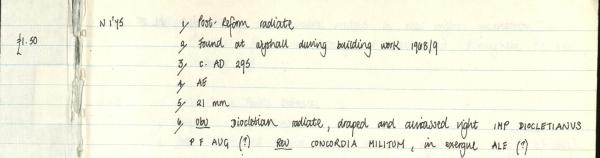 N 1'45 1, Post-Reform radiate
£1.50 2, Found at Wythall during building work 1948/9
3, c. AD 295
4, AE
5, 21 mm
6, Obv Diocletian radiate, draped and cuirassed right IMP DIOCLETIANUS
P F AUG (?) Rev CONCORDIA MILITUM, in exergue ALE (?)